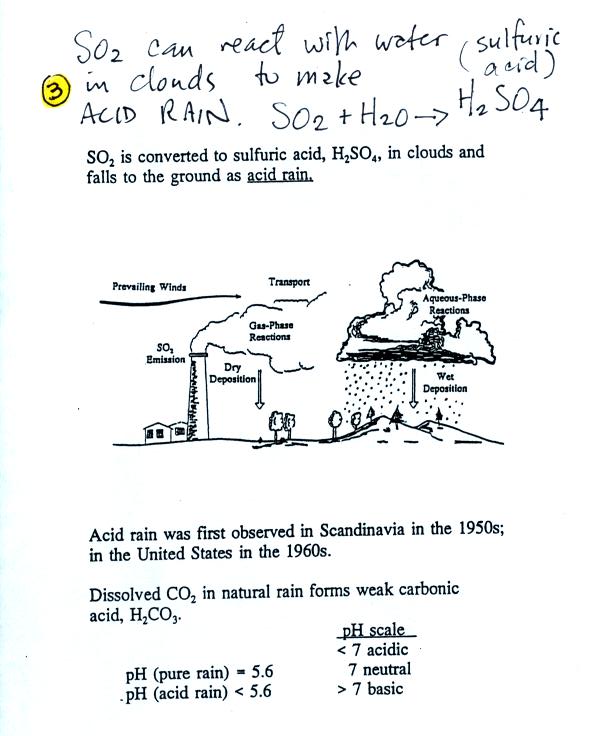 SO₂ can react with water (sulfuric
③ in clouds to make acid)
ACID RAIN. SO₂ + H₂O → H₂SO₄
SO₂ is converted to sulfuric acid, H₂SO₄, in clouds and
falls to the ground as acid rain.
Prevailing Winds
Transport
Aqueous-Phase
Reactions
Gas-Phase
Reactions
SO₂
Emission
Dry
Deposition
Wet
Deposition
Acid rain was first observed in Scandinavia in the 1950s;
in the United States in the 1960s.
Dissolved CO₂ in natural rain forms weak carbonic
acid, H₂CO₃.
pH scale
< 7 acidic
pH (pure rain) = 5.6 7 neutral
pH (acid rain) < 5.6 > 7 basic